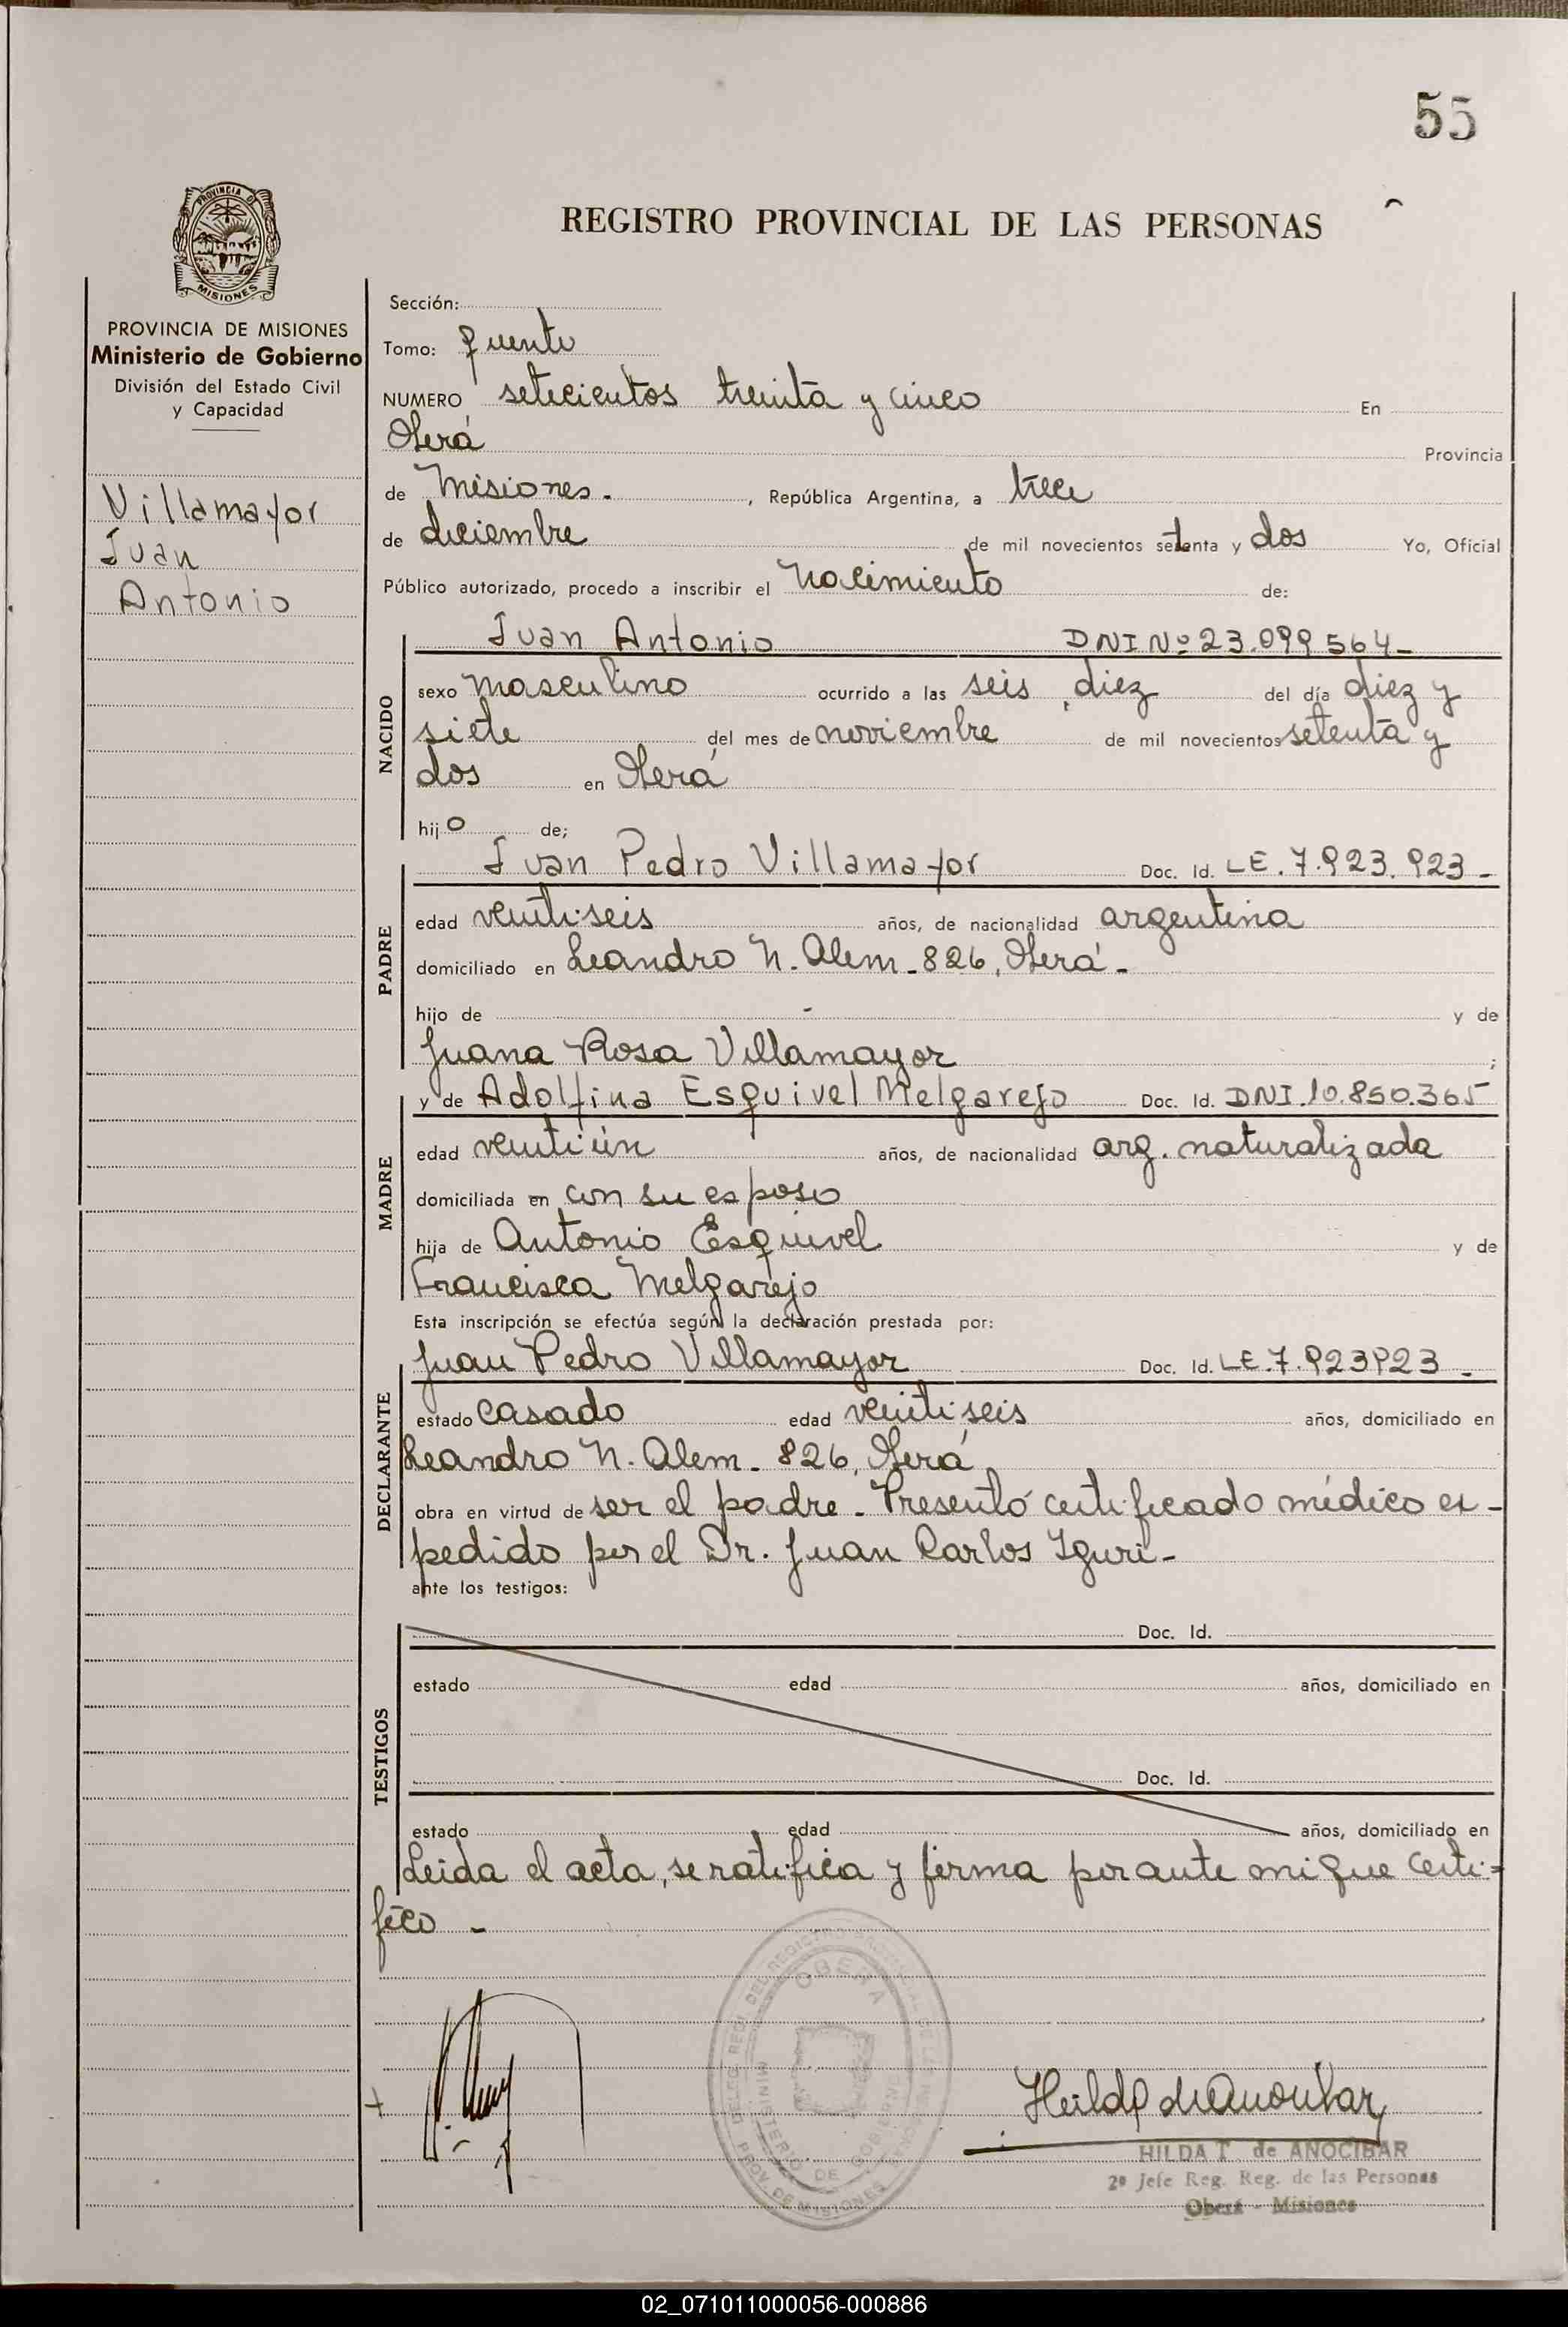 55
REGISTRO PROVINCIAL DE LAS PERSONAS
PROVINCIA DE MISIONES
PROVINCIA DE MISIONES
Ministerio de Gobierno
División del Estado Civil
y Capacidad
Villamayor
Juan
Antonio
Sección:
Tomo: quinto
NUMERO setecientos treinta y cinco En
Oberá Provincia
de Misiones. , República Argentina, a trece
de diciembre de mil novecientos setenta y dos Yo, Oficial
Público autorizado, procedo a inscribir el nacimiento de:
NACIDO
Juan Antonio DNI Nº 23.099.564-
sexo masculino ocurrido a las seis, diez del día diez y
siete del mes de noviembre de mil novecientos setenta y
dos en Oberá
hijo de;
PADRE
Juan Pedro Villamayor Doc. Id. LE. 7.923.923-
edad veintiseis años, de nacionalidad argentina
domiciliado en Leandro N. Alem - 826, Oberá -
hijo de - y de
Juana Rosa Villamayor ;
MADRE
y de Adolfina Esquivel Melgarejo Doc. Id. DNI.10.850.365
edad veintiún años, de nacionalidad arg. naturalizada
domiciliada en con su esposo
hija de Antonio Esquivel y de
Francisca Melgarejo
Esta inscripción se efectúa según la declaración prestada por:
DECLARANTE
Juan Pedro Villamayor Doc. Id. LE.7.923923-
estado casado edad veintiseis años, domiciliado en
Leandro N. Alem - 826, Oberá
obra en virtud de ser el padre - Presentó certificado médico ex-
pedido por el Dr. Juan Carlos Iguri -
ante los testigos:
TESTIGOS
Doc. Id.
estado edad años, domiciliado en
Doc. Id.
estado edad años, domiciliado en
Leida el acta, se ratifica y firma por ante mi que certi-
fico -
OBERA
MINISTERIO DE GOBIERNO
PROV. DE MISIONES
HILDA T. de ANOCIBAR
2º Jefe Reg. Reg. de las Personas
Oberá - Misiones
02_071011000056-000886